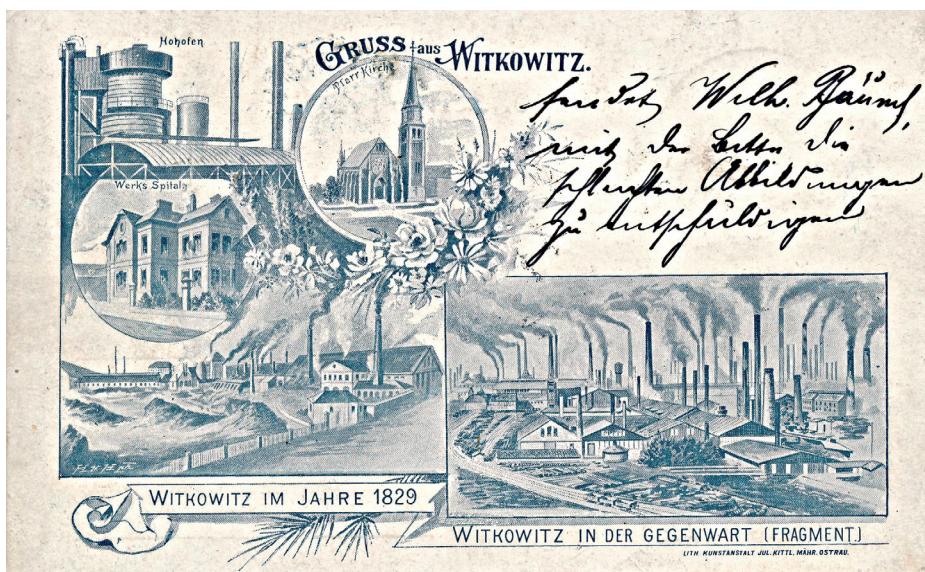 Hohofen
GRUSS aus WITKOWITZ.
Pfarr Kirche
Werks Spital
sendet Wilh.
mit der Bitte die
schlechten Abbildungen
zu entschuldigen
WITKOWITZ IM JAHRE 1829
WITKOWITZ IN DER GEGENWART (FRAGMENT.)
LITH. KUNSTANSTALT JUL. KITTL, MÄHR. OSTRAU.